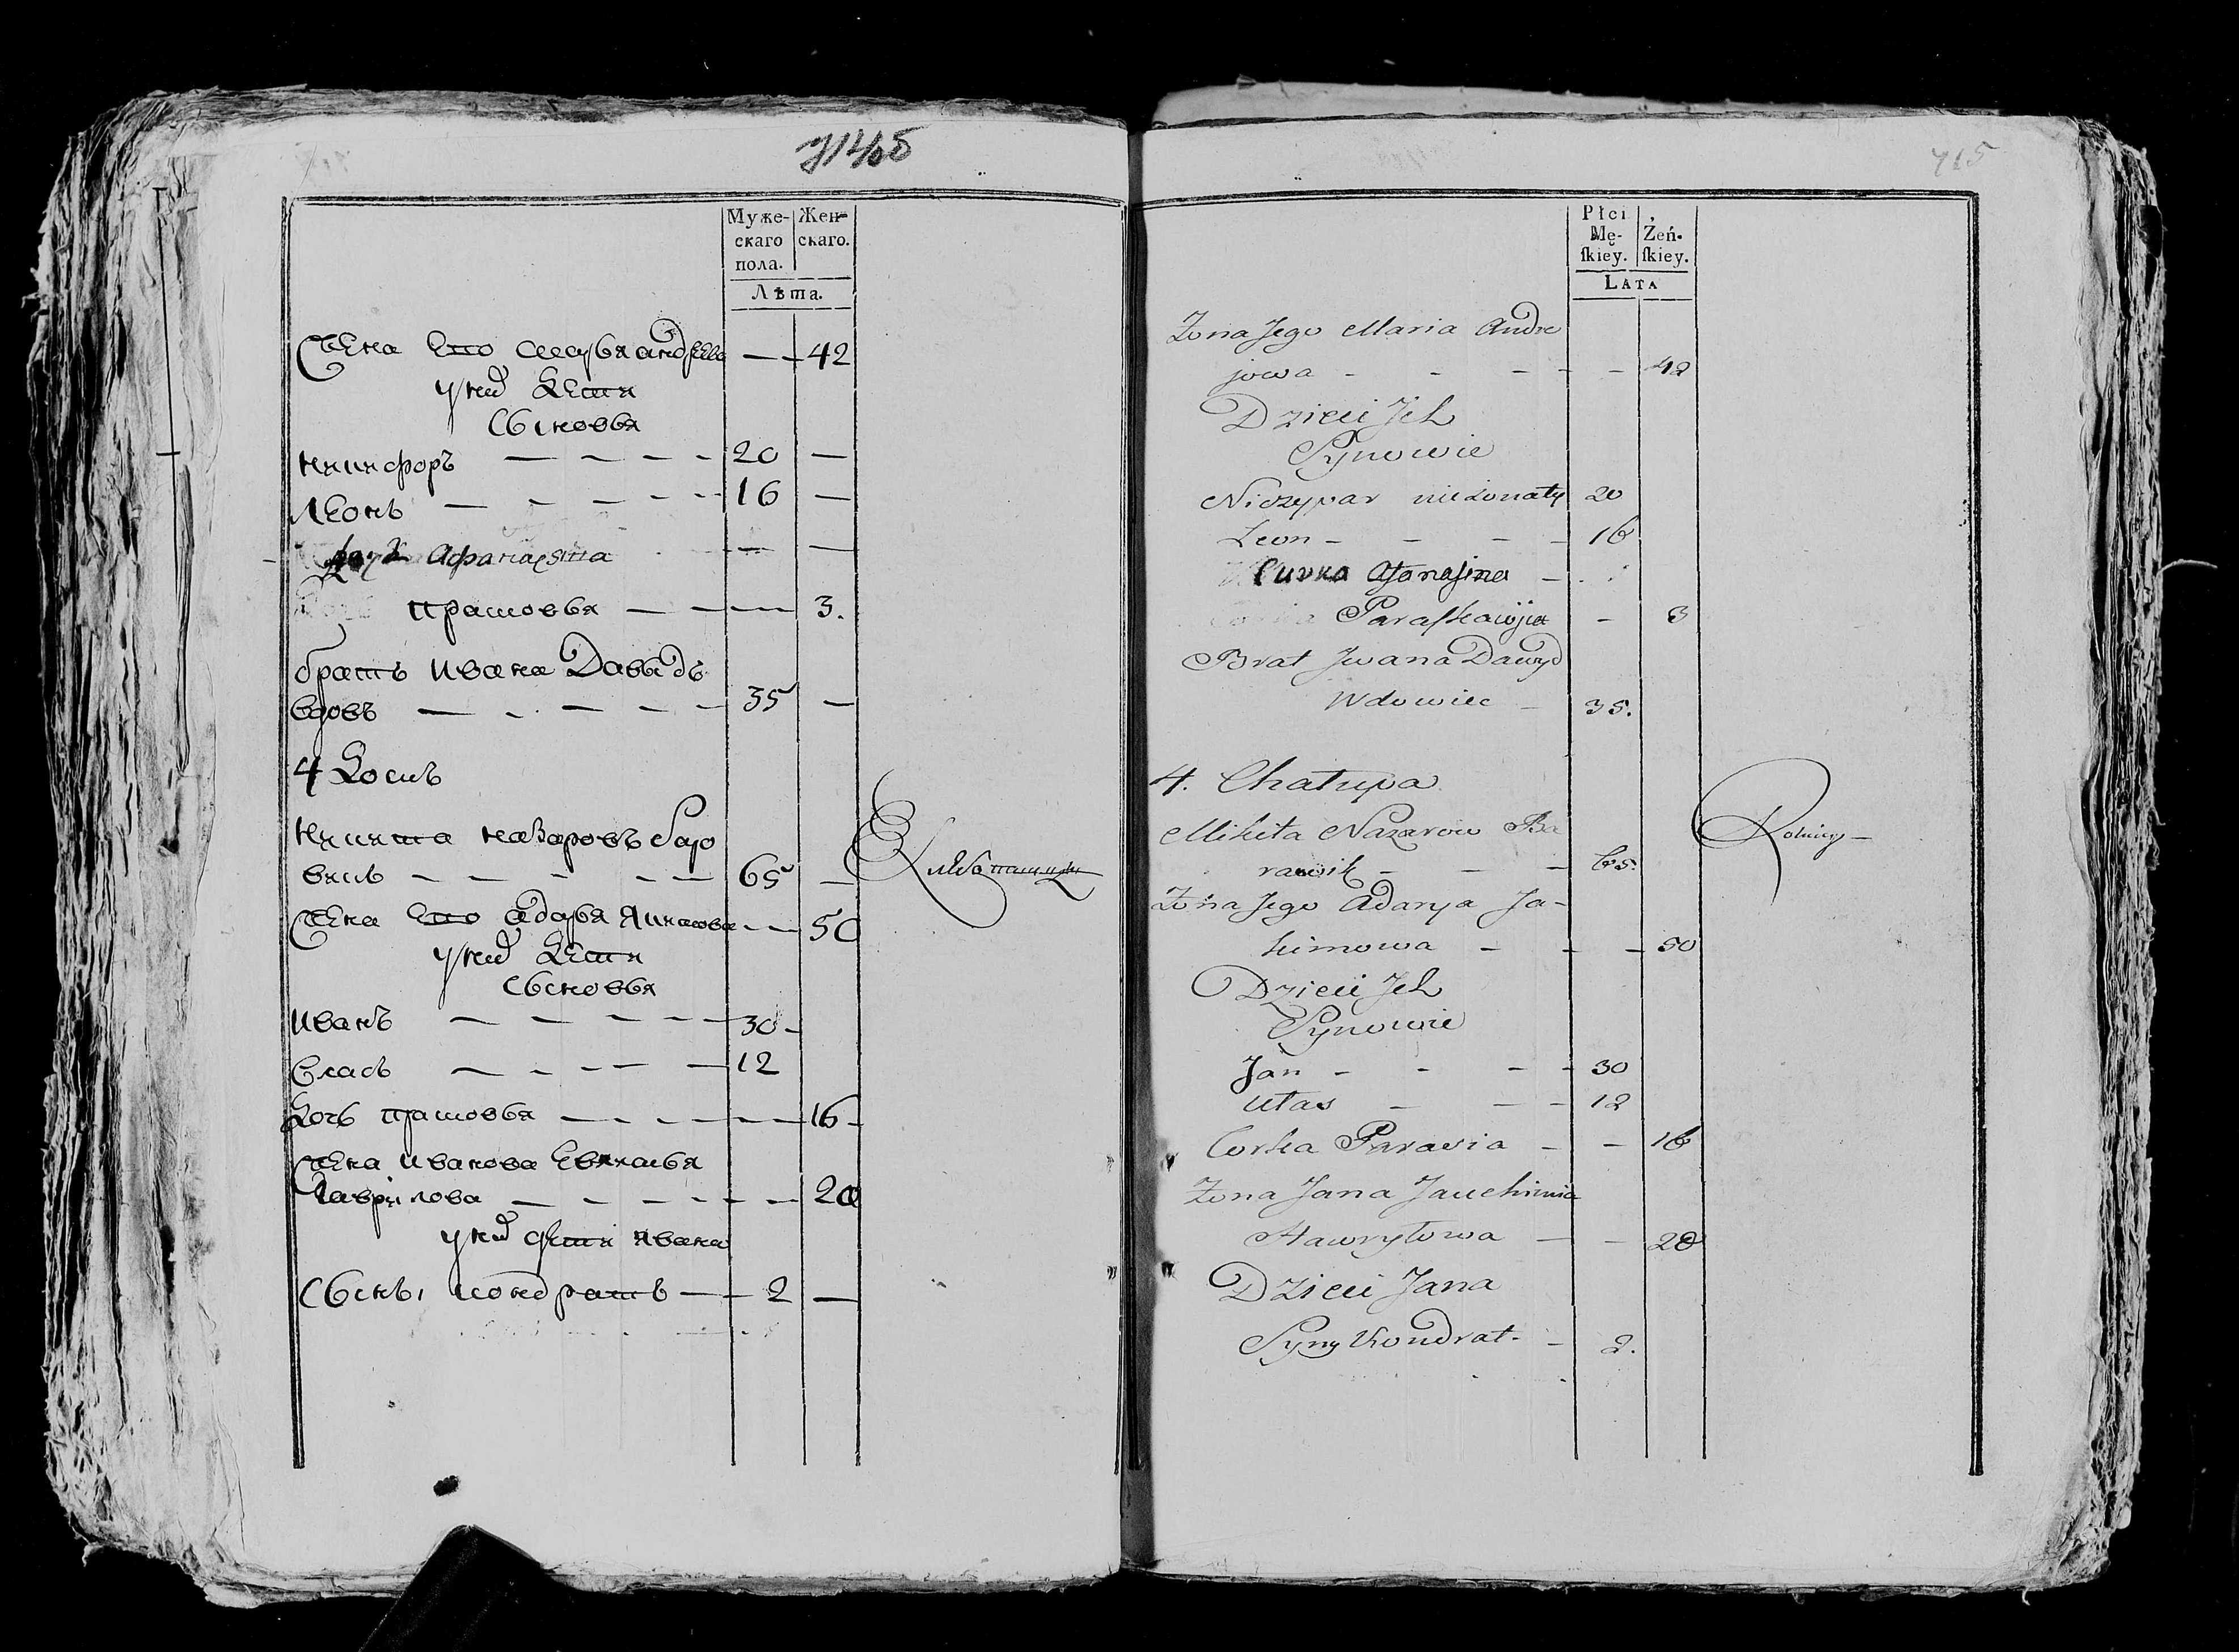 715
Муже-
скаго
пола.
Жен-
скаго.
Лѣта.
Жена Его андрѣева — — 42
у нихъ Дети
Сыновья
никифоръ — — — — — 20 —
Леонъ — — — — — 16 —
Дочь Афанасiна — —
прасковья — — — 3.
братъ ивана Давыдъ
вдовъ — — — — — 35 —
4 Домъ
никита назаровъ баро
викъ — — — — — 65 —
Хлебопашцы
Жена Его адарья Якимова — — 50
у нихъ Дети
Сыновья
иванъ — — — — — 30 —
Власъ — — — — — 12
Дочь прасковья — — — — — 16 —
Жена иванова Евхимья
Гаврилова — — — — — — 20
у нихъ дети ивана
Сынъ, кондратъ — — 2 —
Płci
Mę-
ſkiey.
Żeń-
ſkiey.
Lata
Zona Jego Maria Andre
jowa - - - - - 42
Dzieci Jch
Synowie
Niczypar nieżonaty 20
Leon - - - - 16
Curka Afanasina -
Paraſkawija - 3
Brat Jwana Dawyd
Wdowiec - 35.
4. Chałupa
Mikita Nazarow Ba
rawik - - - 65.
Rolnicy -
Zona Jego Adarya Ja-
kimowa - - - 50
Dzieci Jch
Synowie
Jan - - - - 30
Ułas - - - 12
Corka Parasia - - 16
Zona Jana Jauchimia
Hawryłowa - - 20
Dzieci Jana
Syny Kondrat - - 2.